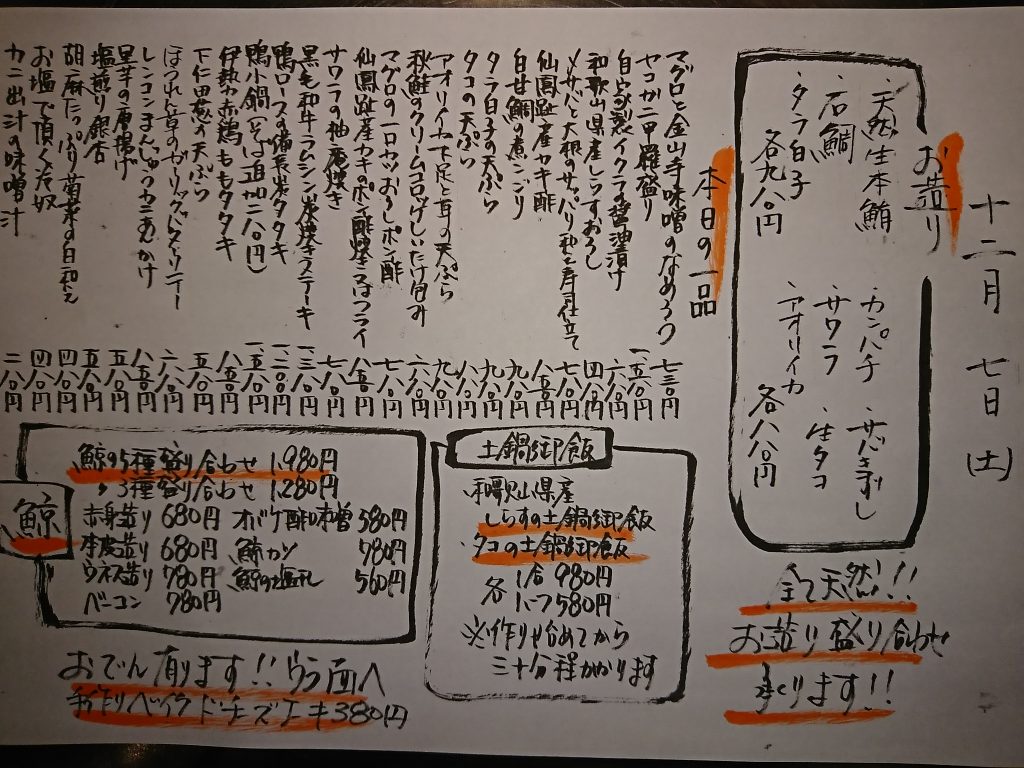 十二月 七日 (土)
お造り
・天然生本鮪
・石鯛
・タラ白子
各九八〇円
・カンパチ ・サバきずし
・サワラ ・生タコ
・アオリイカ 各八八〇円
全て天然!!
お造り盛り合わせ
承ります!!
本日の一品
マグロと金山寺味噌のなめろう 七三〇円
セコガニ甲羅盛り 一、五八〇円
自家製イクラ醤油漬け 六八〇円
和歌山県産しらすおろし 四八〇円
〆サバと大根のサッパリ和と寿司仕立て 七八〇円
仙鳳趾産カキ酢 八五〇円
白甘鯛の煮こごり 九八〇円
タラ白子の天ぷら 九八〇円
タコの天ぷら 八八〇円
アオリイカ下足と耳の天ぷら 九八〇円
秋鮭のクリームコロッケしいたけ包み 八八〇円
マグロの一口カツおろしポン酢 七八〇円
仙鳳趾産カキのポン酢焼 又はフライ 八五〇円
サワラの柚庵焼き 七八〇円
黒毛和牛ラムシン炭焼きステーキ 一、三八〇円
鴨ロースの備長炭タタキ 一、二八〇円
鴨小鍋(そば追加二八〇円) 一、五八〇円
伊勢赤鶏ももタタキ 八五〇円
下仁田葱の天ぷら 五八〇円
ほうれん草のガーリックバターソテー 六八〇円
レンコンまんじゅうカニあんかけ 八五〇円
里芋の唐揚げ 五八〇円
塩煎り銀杏 五五〇円
胡麻たっぷり菊菜の白和え 四八〇円
お塩で頂く冷奴 四八〇円
カニ出汁の味噌汁 二八〇円
土鍋御飯
和歌山県産
しらすの土鍋御飯
タコの土鍋御飯
各 1合 980円
1.5合 1,580円
※作り始めてから
三十分程かかります
鯨
鯨の5種盛り合わせ 1,980円
〃 3種盛り合わせ 1,280円
赤身造り 680円 オバケ酢味噌 580円
本皮造り 680円 鯨カツ 780円
ウネス造り 780円 鯨の塩丸 560円
ベーコン 780円
おでん有ります!! ウラ面へ
手作りベイクドチーズケーキ 380円